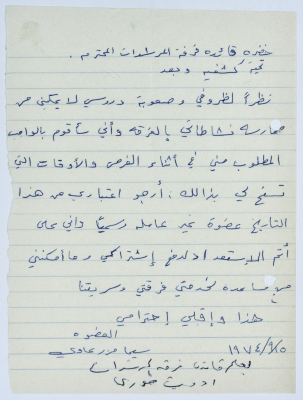 حضرة قائدة فرقة المرشدات المحترمة.
تحية كشفية وبعد
نظراً لظروفي وصعوبة دروسي لا يمكنني من
ممارسة نشاطاتي بالفرقة وأني سأقوم بالواجب
المطلوب مني في أثناء الفرص والأوقات التي
تسمح لي بذالك، أرجو اعتباري من هذا
التاريخ عضوة غير عاملة رسمياً وأني على
أتم الإستعداد لدفع إشتراكي وما أمكنني
من مساعدة لخدمتي فرقتي وسريتنا
هذا وإقبلي إحترامي
العضوة
١٩٧٤/٩/٥
قائدة فرقة
خوري